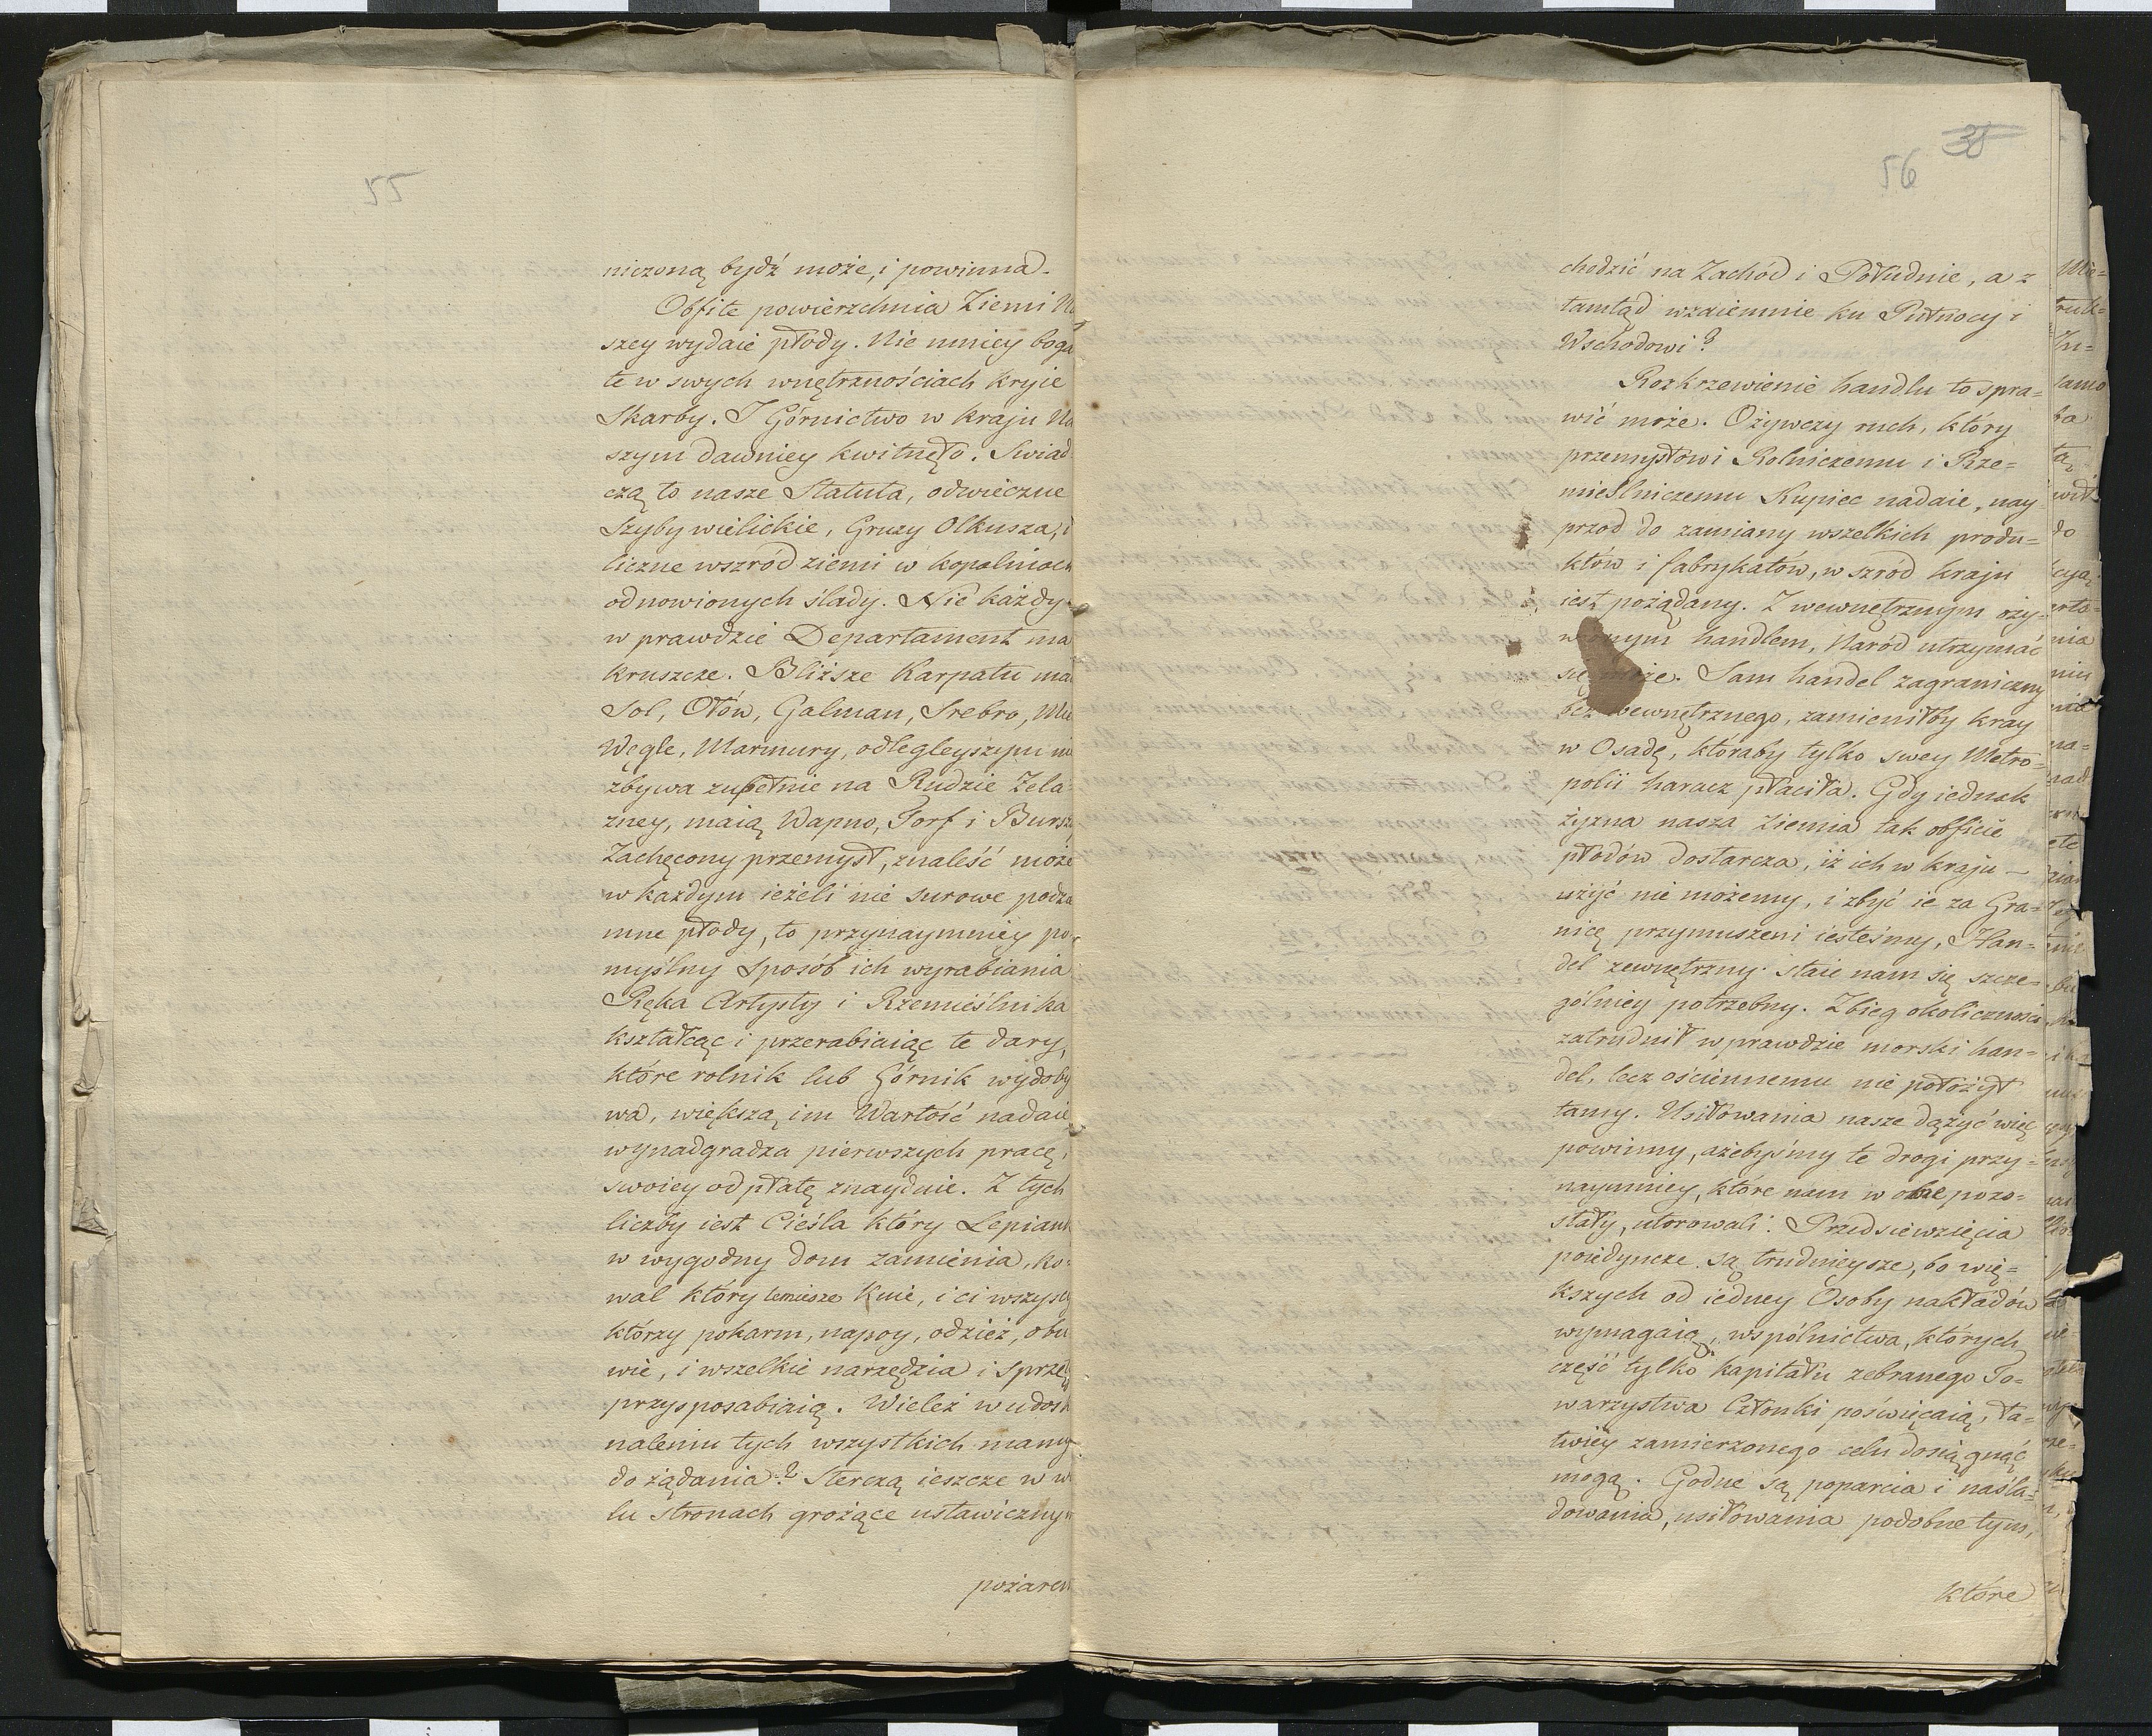 55
niczoną bydź może, i powinna.
Obfite powierzchnia Ziemi Na
szey wydaie płody. Nie mniey boga
te w swych wnętrznościach kryie
Skarby. I Górnictwo w kraju Na
szym dawniey kwitnęło. Swiad
czą to nasze Statuta, odwieczne
Szyby wielickie, Gruzy Olkusza, i
liczne wszród ziemi w kopalniach
odnowionych ślady. Nie każdy
w prawdzie Departament ma
kruszcze. Bliższe Karpatu ma
Sol, Ołów, Galman, Srebro, Mie
Węgle, Marmury, odlegleyszym nie
zbywa zupełnie na Rudzie Żela
zney, maią Wapno, Torf i Bursz
Zachęcony przemysł, znaleść może
w każdym ieżeli nie surowe podzie
mne płody, to przynaymniey po
myślny sposób ich wyrabiania
Ręka Artysty i Rzemieślnika
kształcąc i przerabiaiąc te dary,
które rolnik lub Górnik wydoby
wa, większą im Wartość nadaie
wynadgradza pierwszych pracę,
swoiey odpłatę znayduie. Z tych
liczby iest Cieśla który Lepiank
w wygodny dom zamienia, ko
wal który lemiesze kuie, i ci wszyscy
którzy pokarm, napoy, odzież, obu
wie, i wszelkie narzędzia i sprzę
przysposabiaią. Wieleż w udosk
naleniu tych wszystkich mamy
do żądania? Sterczą ieszcze w wi
lu stronach grożące ustawicznym
pożarem
56 35
chodzić na Zachód i Południe, a z
tamtąd wzaiemnie ku Pułnocy i
Wschodowi?
Rozkrzewienie handlu to spra=
wić może. Ożywczy ruch, który
przemysłowi Rolniczemu i Rze=
mieślniczemu Kupiec nadaie, nay
przod do zamiany wszelkich produ=
któw i fabrykatów, w szród kraju
iest pożądany. Z wewnętrznym oży=
wionym handlem, Naród utrzymać
się może. Sam handel zagraniczny
bez wewnętrznego, zamieniłby kray
w Osadę, któraby tylko swey Metro=
polii haracz płaciła. Gdy iednak
żyzna nasza Ziemia tak obficie
płodów dostarcza, iż ich w kraju —
użyć nie możemy, i zbyć ie za Gra=
nicę przymuszeni iesteśmy, Han=
del zewnętrzny staie nam się szcze=
gólniey potrzebny. Zbieg okoliczności
zatrudnił wprawdzie morski han=
del, lecz ościennemu nie położył
tamy. Usiłowania nasze dążyć więc
powinny, ażebyśmy te drogi przy=
naymniey, które nam wolne pozo=
stały, utorowali. Przedsiewzięcia
poiedyncze są trudnieysze, bo wię=
kszych od iedney Osoby nakładów
wymagaią, wspólnictwa, których
część tylko kapitału zebranego To=
warzystwa Członki poświęcaią, ła=
twiey zamierzonego celu dosiągnąć
mogą. Godne są poparcia i naśla=
dowania, usiłowania podobne tym,
które